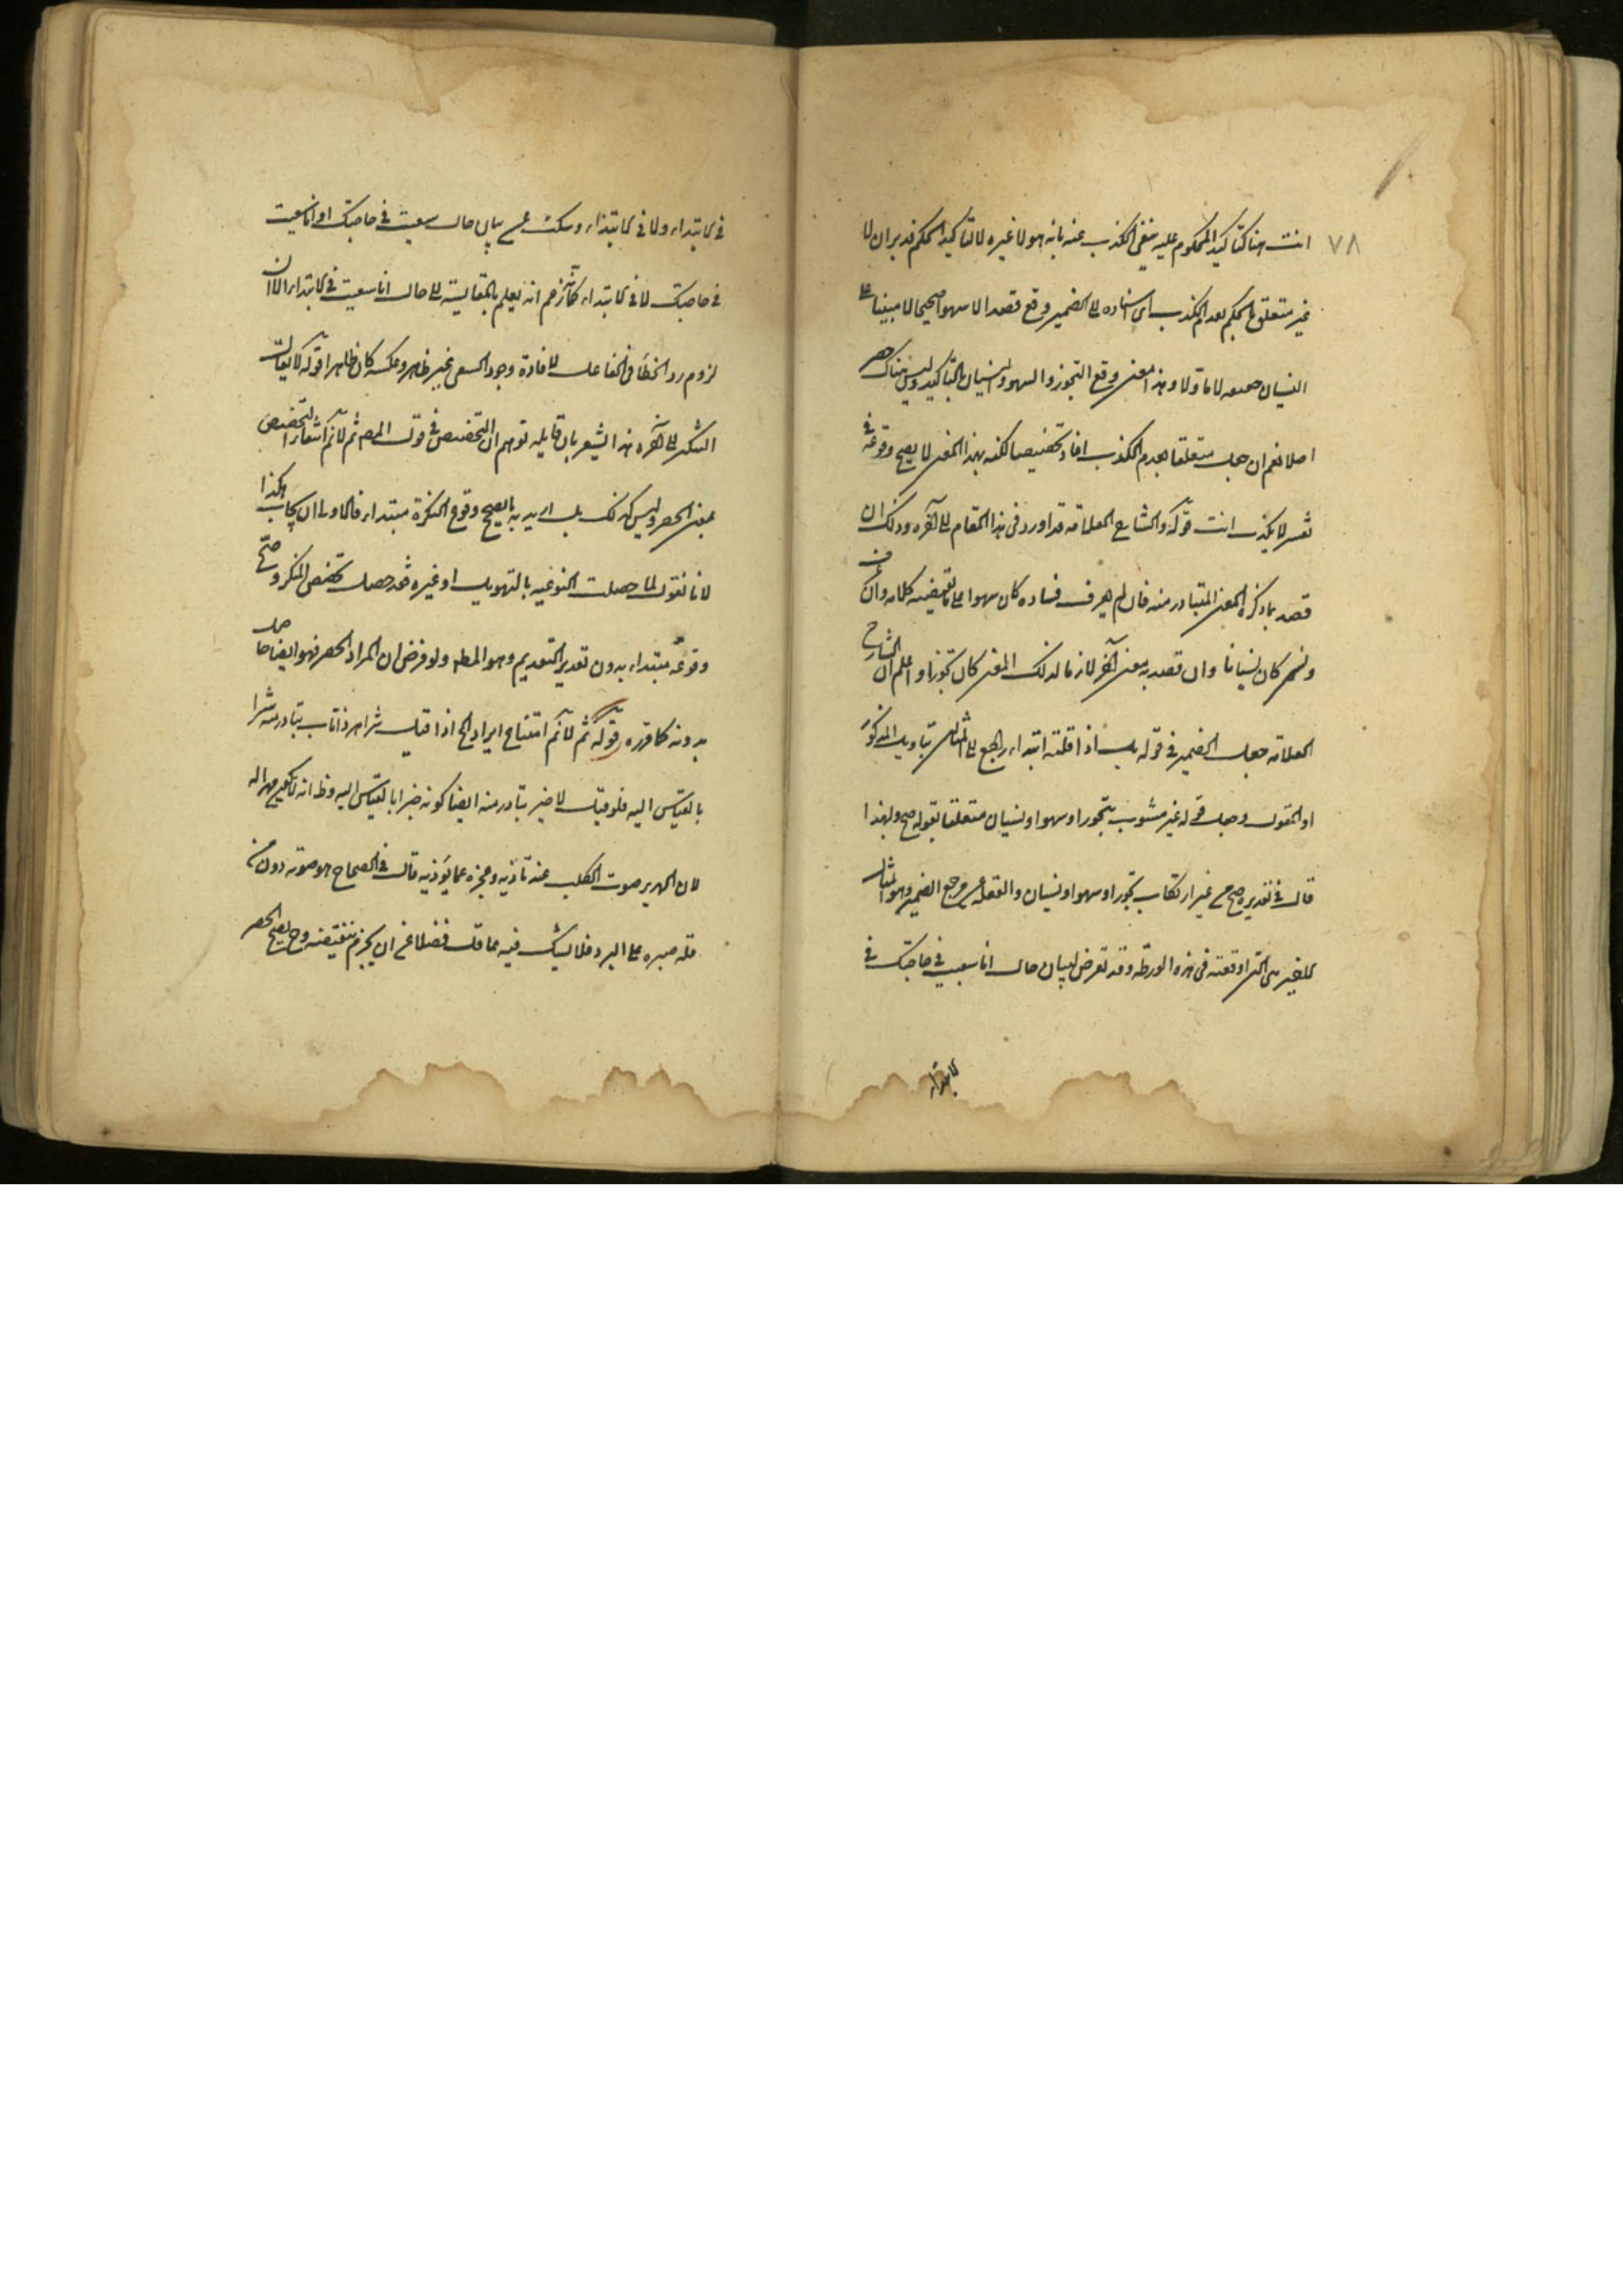 ٧٨
انت هنا لتاكيد المحكوم عليه بنفى الكذب عنه بانه هو لا غيره لا لتاكيد الحكم فدبر ان لا
غير متعلق بالحكم بعدم الكذب اى اسناده الى الضمير وقع قصدا لا سهوا صحيحا لا مبينا على
النسيان لا ماولا وهذا المعنى وقع التجوز والسهو والنسيان بالتاكيد وليس هناك حصر
اصلا نعم ان جعل متعلقا بعدم الكذب افاد تخصيصا لكنه بهذا المعنى لا يصح وقوعه فى
تفسير لا يكذب انت قوله والشارح العلامة قد اورد فى هذا المقام الى آخره وذلك ان
قصد بما ذكره المعنى المتبادر منه فان لم يعرف فساده كان سهوا على ما يقتضيه كلامه وان عرف
ونسى كان نسيانا وان قصد به معنى آخر لازما لذلك المعنى كان تجوزا واعلم ان الشارح
العلامة جعل الضمير فى قوله بل اذا قلته ابتداء راجع الى المثال بتاويل المذكور
او القول وجعل قوله غير مشوب بتجوز او سهو او نسيان متعلقا بقوله صح ولهذا
قال فى تقديره صح من غير ارتكاب تجوز او سهو او نسيان والغفلة عن مرجع الضمير وهو المثال
للخير هى التى اوقعته فى هذه الورطة وقد تعرض لبيان حال انا سعيت فى حاجتك فى
الابتداء
فى الابتداء ولا فى الابتداء وسكت عن بيان حال سعيت فى حاجتك او انا سعيت
فى حاجتك لا فى الابتداء كانه زعم انه يعلم بالمقايسة الى حال انا سعيت فى الابتداء الا ان
لزوم رد الخطا فى الفاعل لافادة وجود السعى غير ظاهر وعكسه كان ظاهرا قوله لا يقال
التنكير الى آخره هذا يشعر بان قايله توهم ان التخصيص فى قول المص ثم لا نم انتفاء التخصيص
بمعنى الحصر وليس كذلك بل اريد به ما يصح وقوع النكرة مبتداء فالاولى ان يجاب هكذا
لانا نقول لما حصلت النوعية بالتهويل او غيره فقد حصل تخصص المنكر وصح
وقوعه مبتداء بدون تقدير التقديم وهو المط ولو فرض ان المراد الحصر فهو ايضا حاصل
بدونه كما قرره قوله ثم لا نم امتناع ايراد الخ اذا قيل شر اهر ذا ناب يتبادر منه شرا
بالقياس اليه فلو قيل لا خير يتبادر منه ايضا كونه خيرا بالقياس اليه وظ انه لا يكون مهرا له
لان الهرير صوت الكلب عند تاذيه وعجزه عما يوذيه قال فى الصحاح هو صوته دون نباحه من
قلة صبره على البرد فلا يشك فيه عاقل فضلا عن ان يجزم بنقيضه وح يصح الحصر